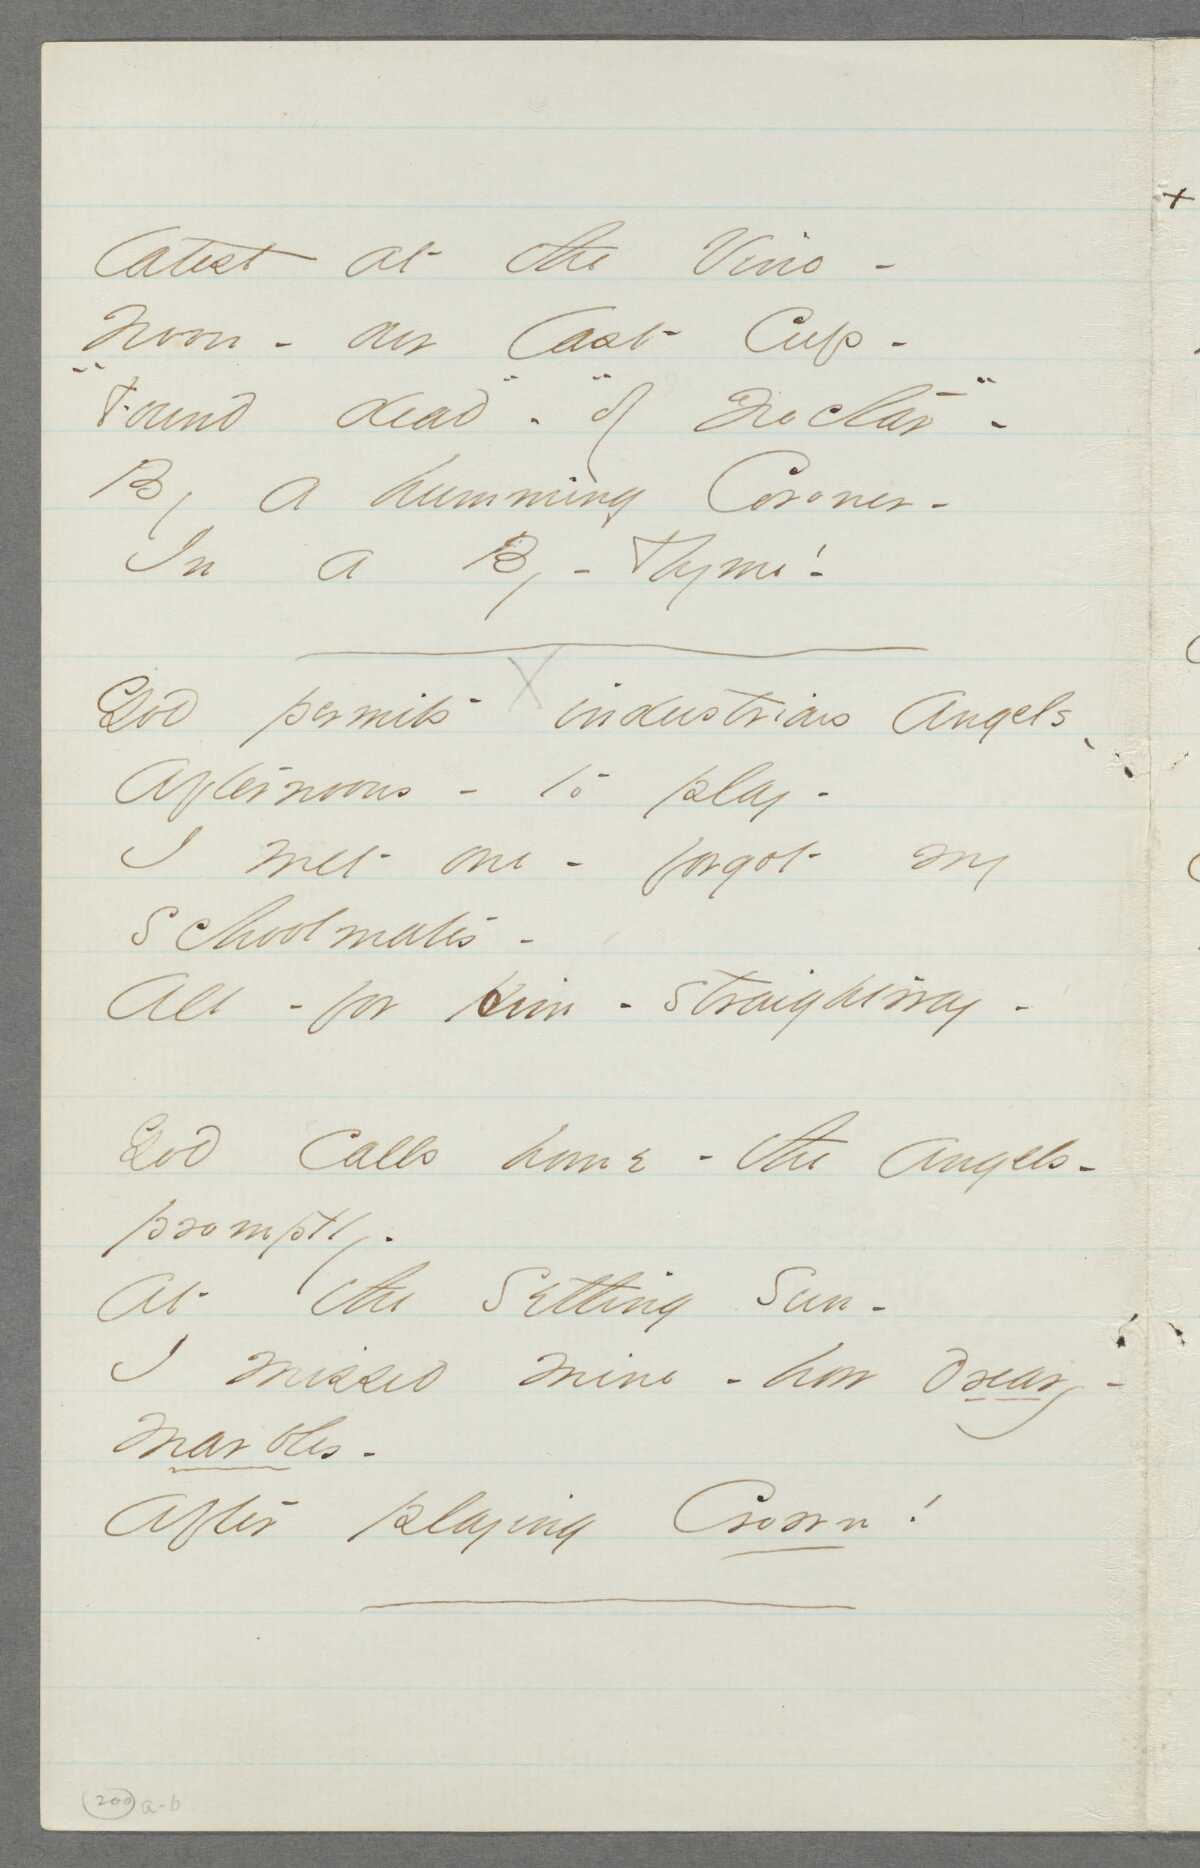 Latest at the Vine -
Noon - our Last Cup -
"Found dead" - "of Nectar" -
By a humming Coroner -
In a By - Thyme!
God permits industrious Angels
Afternoons - to play -
I met one - forgot my
Schoolmates -
All - for Him - straightway -
God calls home - the Angels -
promptly -
At the Setting Sun -
I missed mine - how dreary -
Marbles -
After playing Crown!
200 a-b